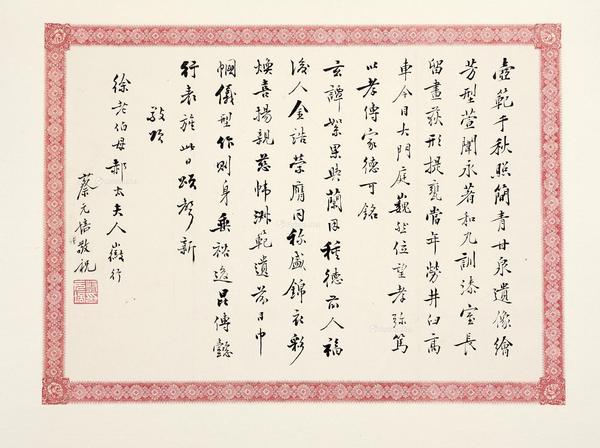 壺範千秋照簡青甘泉遺像繪
芳型萱闈永著和丸訓漆室長
留畫荻形提甕當年勞井臼高
車今日大門庭巍然位望孝彌篤
以孝傳家德可銘
玄譚絮果與蘭因種德前人福
後人金誥榮膺同稱盛錦衣彩
煥喜揚親慈幃淑範遺茲日巾
幗儀型作則身垂裕逸昆傳懿
行表旌此日頌聲新
敬頌
徐老伯母郝太夫人徽行
蔡元培敬祝